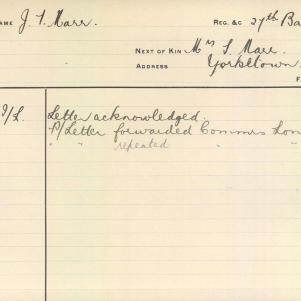 NAME J. T. Marr. REG. &C 27th Ba
NEXT OF KIN Mrs S. Marr.
ADDRESS Yorketown.
F
P/L. Letter acknowledged.
P/Letter forwarded Commrs Lon
" " repeated " "